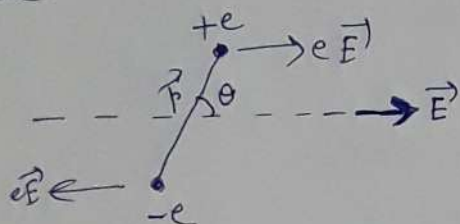 +e
e\vec{E}
\vec{p} θ
\vec{E}
e\vec{E}
-e